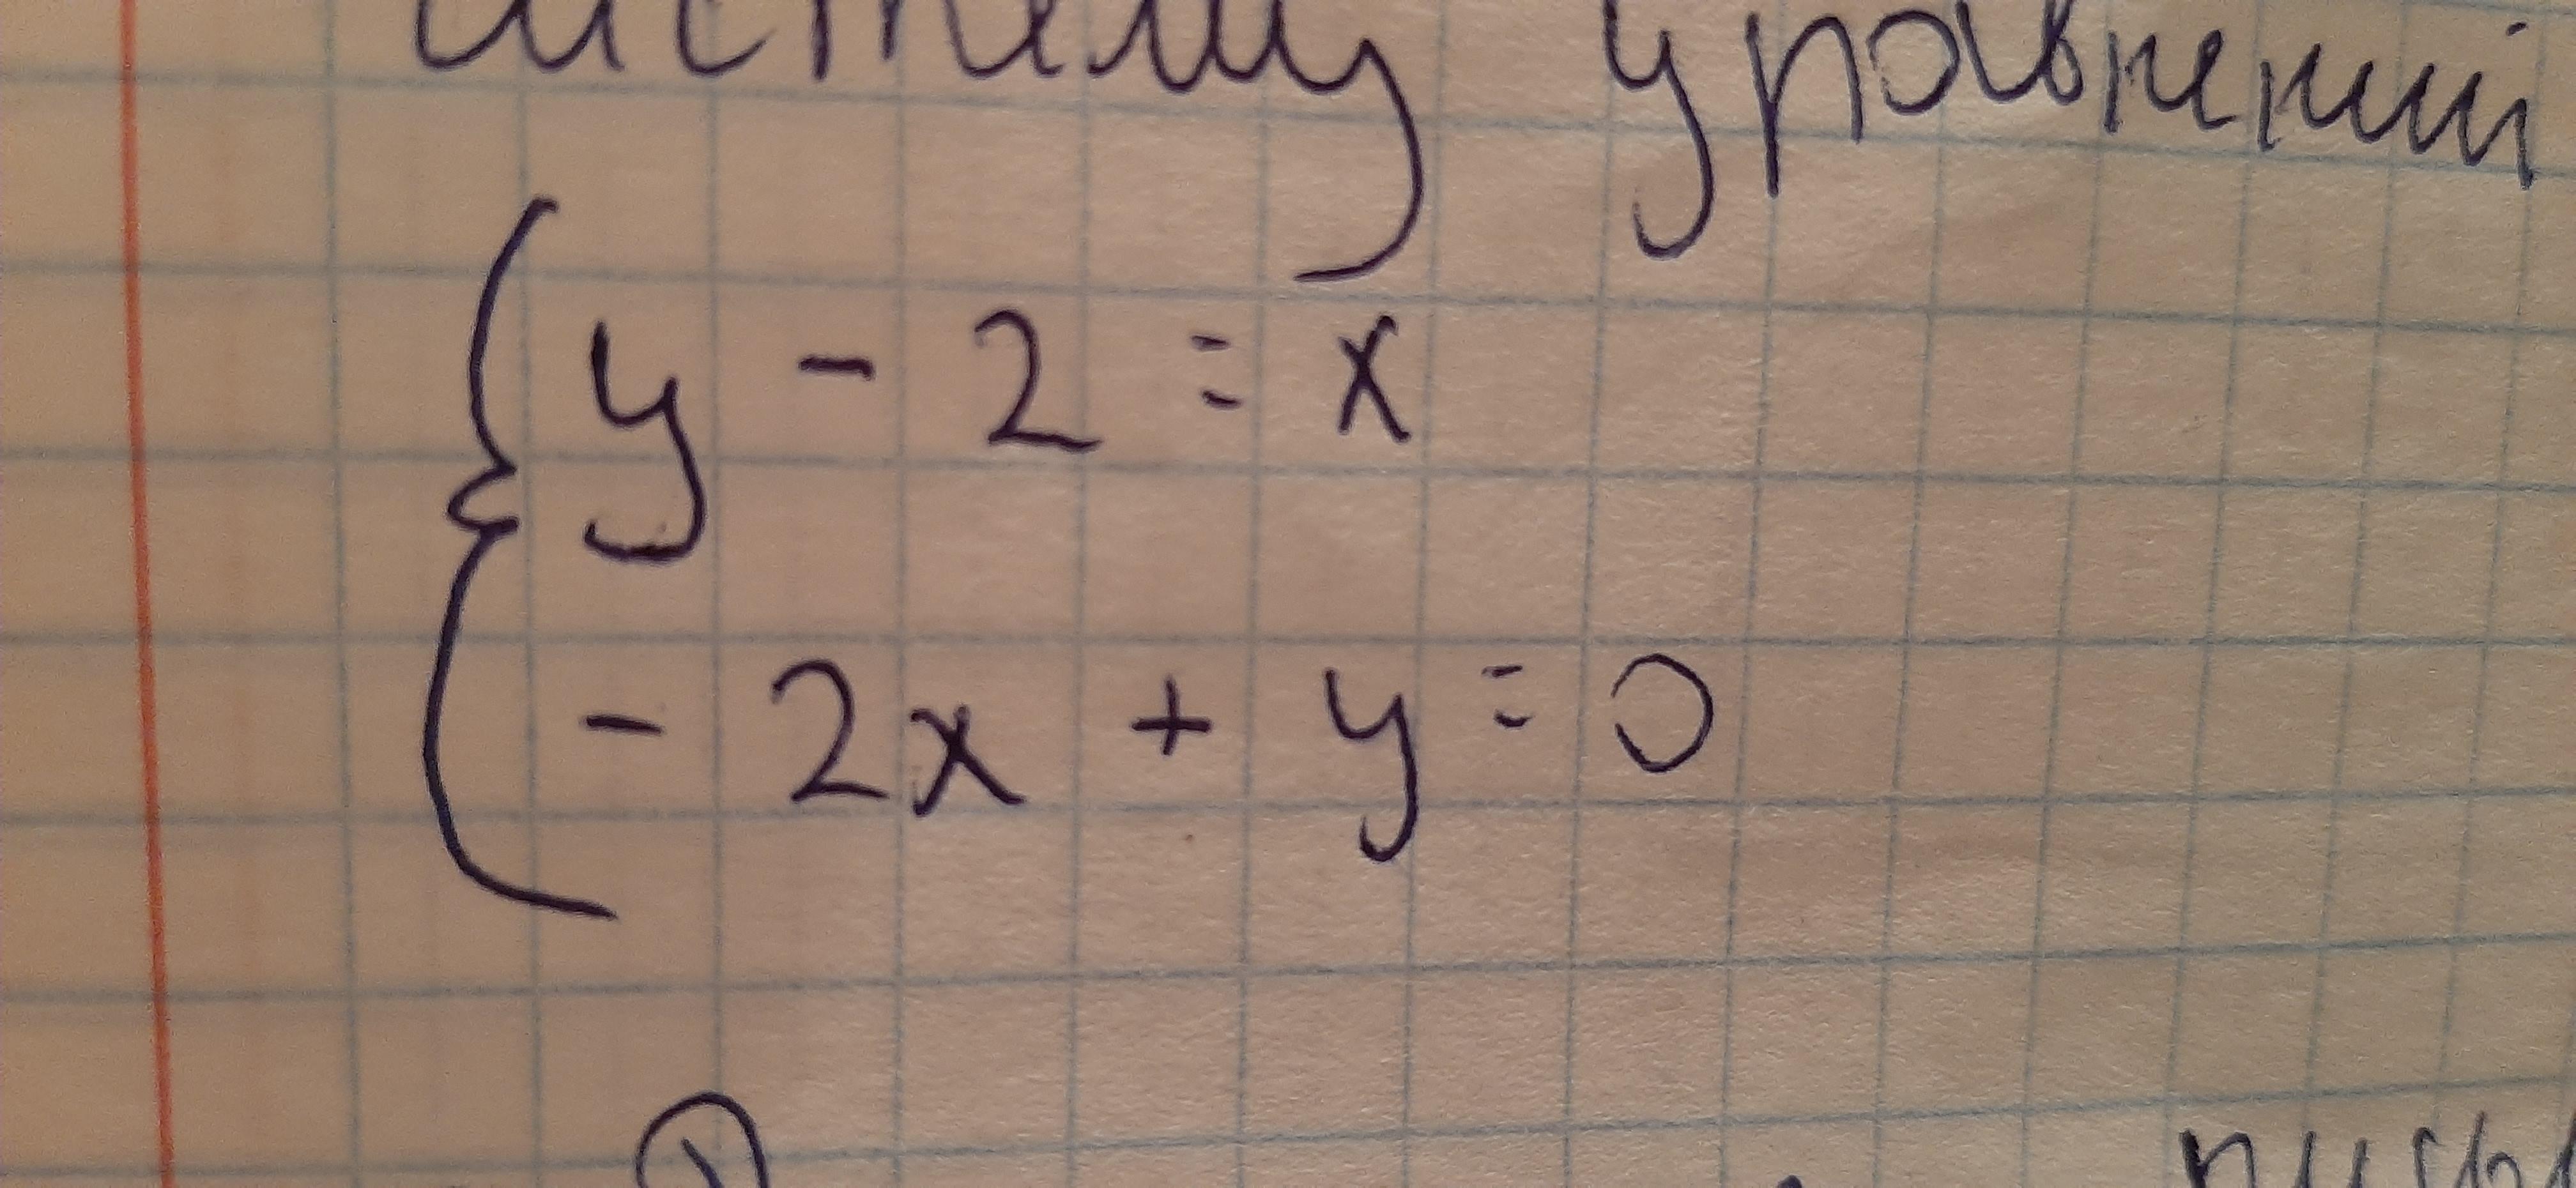 систему уравнений
{ y - 2 = x
- 2x + y = 0